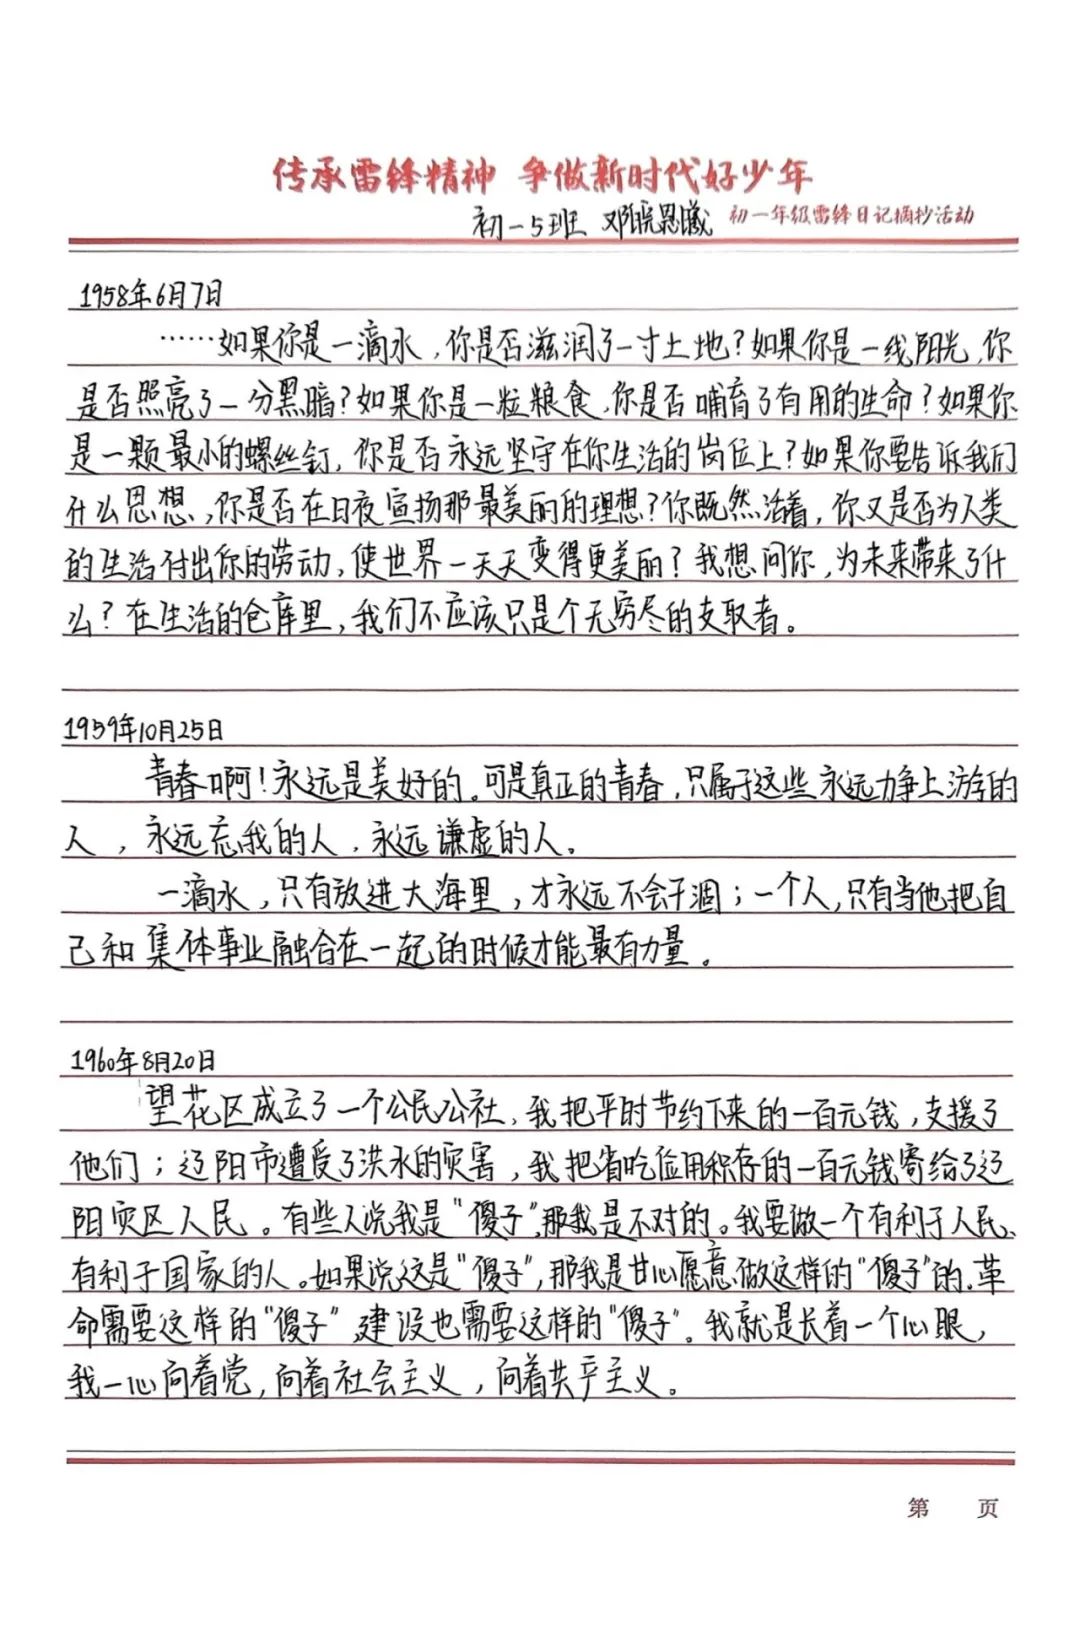 传承雷锋精神 争做新时代好少年
初一5班 邓晓思曦 初一年级雷锋日记摘抄活动
1958年6月7日
……如果你是一滴水,你是否滋润了一寸土地?如果你是一线阳光,你
是否照亮了一分黑暗?如果你是一粒粮食,你是否哺育了有用的生命?如果你
是一颗最小的螺丝钉,你是否永远坚守在你生活的岗位上?如果你要告诉我们
什么思想,你是否在日夜宣扬那最美丽的理想?你既然活着,你又是否为人类
的生活付出你的劳动,使世界一天天变得更美丽?我想问你,为未来带来了什
么?在生活的仓库里,我们不应该只是个无穷尽的支取者。
1959年10月25日
青春啊!永远是美好的。可是真正的青春,只属于这些永远力争上游的
人,永远忘我的人,永远谦虚的人。
一滴水,只有放进大海里,才永远不会干涸;一个人,只有当他把自
己和集体事业融合在一起的时候才能最有力量。
1960年8月20日
望花区成立了一个公民公社,我把平时节约下来的一百元钱,支援了
他们;辽阳市遭受了洪水的灾害,我把省吃俭用积存的一百元钱寄给了辽
阳灾区人民。有些人说我是“傻子”,那我是不对的。我要做一个有利于人民、
有利于国家的人。如果说这是“傻子”,那我是甘心愿意做这样的“傻子”的.革
命需要这样的“傻子”,建设也需要这样的“傻子”。我就是长着一个心眼,
我一心向着党,向着社会主义,向着共产主义。
第 页